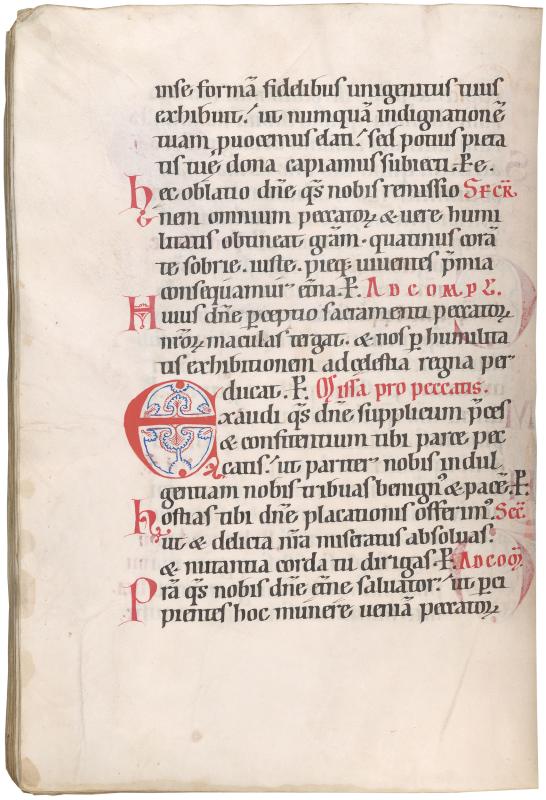 inse formā fidelibus unigenitus tuus
exhibuit. ut numquā indignationē
tuam puocemus elati. sed potius pieta
tis tuę dona capiamus subiecti. P̄ e.
Hec oblatio dn̄e q̄s nobis remissio SECR̄.
nem omnium peccatoꝝ & uere humi
litatis obtineat grām. quatinus corā
te sobrie. iuste. pieq; uiuentes p̄mia
consequamur etn̄a. P̄. AD COMPL̄.
Huius dn̄e ꝑceptio sacramenti peccatoꝝ
nr̄oꝝ maculas tergat. & nos ꝑ humilita
tis exhibitionem ad cęlestia regna per
ducat. P̄. Missa pro peccatis.
Exaudi q̄s dn̄e supplicum p̄ces
& confitentium tibi parce pec
catis. ut pariter nobis indul
gentiam nobis tribuas benign᾽ & pacē. P̄.
Hostias tibi dn̄e placationis offerim᾽. Secr̄
ut & delicta nr̄a miseratus absoluas.
& nutantia corda tu dirigas. P̄. AD COM̄
Prā q̄s nobis dn̄e etn̄e saluator. ut ꝑci
pientes hoc munere ueniā peccatoꝝ